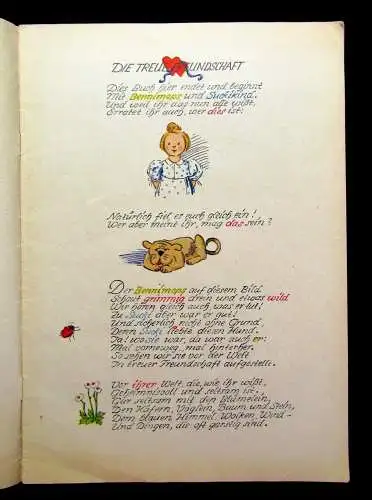 DIE TREUE FREUNDSCHAFT
Dies Buch hier endet und beginnt
Mit Bennimops und Suckikind.
Und weil ihr das nun alle wißt,
Erratet ihr auch, wer dies ist:
Natürlich fiel es euch gleich ein!
Wer aber meint ihr, mag das sein?
Der Bennimops auf diesem Bild
Schaut grimmig drein und etwas wild
Wir hören gleich auch was er tut!
Zu Sucki aber war er gut!
Und sicherlich nicht ohne Grund,
Denn Sucki liebte diesen Hund.
Ja! wo sie war, da war auch er:
Mal vorneweg, mal hinterher,
So sehen wir sie vor der Welt
In treuer Freundschaft aufgestellt.
Vor ihrer Welt, die, wie ihr wißt,
Geheimnisvoll und seltsam ist,
Gar seltsam mit den Blümelein,
Den Käfern, Vöglein, Baum und Stein,
Dem blauen Himmel, Wolken, Wind-
Und Dingen, die oft garstig sind.